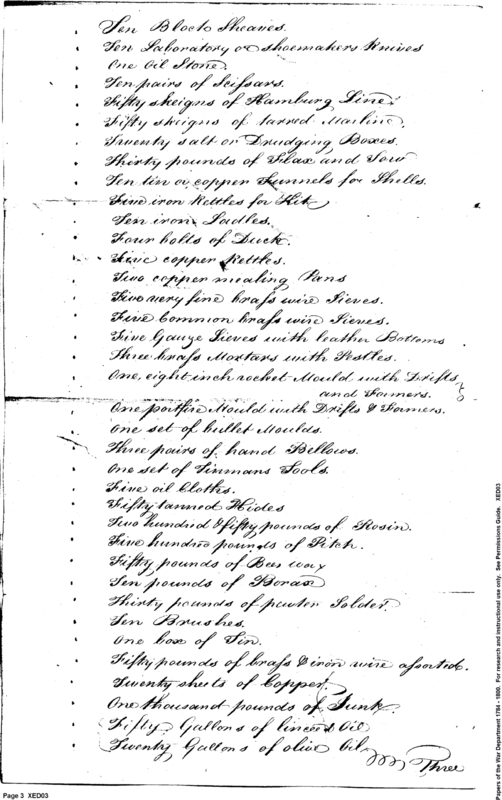 Ten Block Sheaves.
Ten Laboratory or shoemakers Knives
One Oil Stone.
Ten pairs of Scissars.
Fifty skeigns of Hamburg Line.
Fifty skeigns of tarred Marline.
Twenty salt or Drudging Boxes.
Thirty pounds of Flax and Tow
Ten tin or copper Funnels for Shells.
Five iron Kettles for Kit
Ten iron Ladles.
Four bolts of Duck.
Five copper Kettles.
Two copper mealing Pans
Five very fine brass wire Sieves.
Five Common brass wire Sieves.
Five Gauze Sieves with leather Bottoms
Three brass Mortars with Pestles.
One, eight inch rocket Mould with Drifts
and Formers.
One portfire Mould with Drifts & Formers.
One set of bullet Moulds.
Three pairs of hand Bellows.
One set of Tinmans Tools.
Five oil Cloths.
Fifty tanned Hides
Two hundred & fifty pounds of Rosin.
Five hundred pounds of Pitch.
Fifty pounds of Bees wax
Ten pounds of Borax
Thirty pounds of pewter Solder
Ten Brushes.
One box of Tin.
Fifty pounds of brass & iron wire assorted.
Twenty sheets of Copper.
One thousand pounds of Junk.
Fifty Gallons of linceed Oil
Twenty Gallons of olive Oil
Three
Page 3 XED03
Papers of the War Department 1784 - 1800. For research and instructional use only. See Permissions Guide. XED03